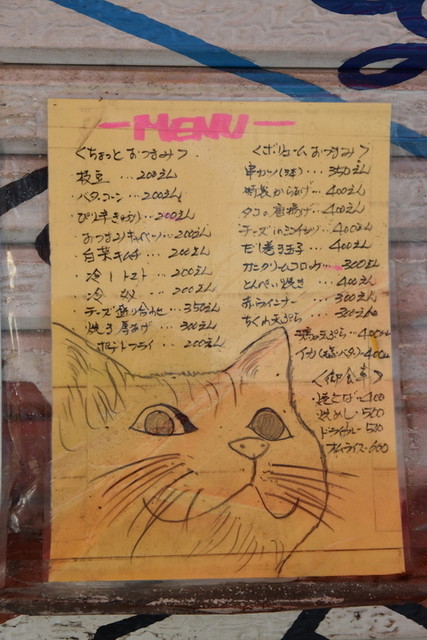 MENU
<ちょっと おつまみ>
枝豆 … 200えん
バタコーン … 200えん
ぴり辛きゅうり … 200えん
おつまみキャベツ … 200えん
白菜キムチ … 200えん
冷しトマト … 200えん
冷 奴 … 200えん
チーズ盛り合わせ … 350えん
焼き厚あげ … 300えん
ポテトフライ … 200えん
<ボリューム おつまみ>
串カツ(3本) … 350えん
からあげ … 400えん
タコの唐揚げ … 400えん
チーズinミンチカツ … 400えん
だし巻き玉子 … 400えん
カニクリームコロッケ … 300えん
とんぺい焼き … 400えん
赤ウインナー … 300えん
ちくわ天ぷら … 300えん
天ぷら … 400えん
イカ(塩・バタ) … 400えん
<御食事>
焼そば … 400
焼めし … 500
ドライカレー … 500
オムライス … 600